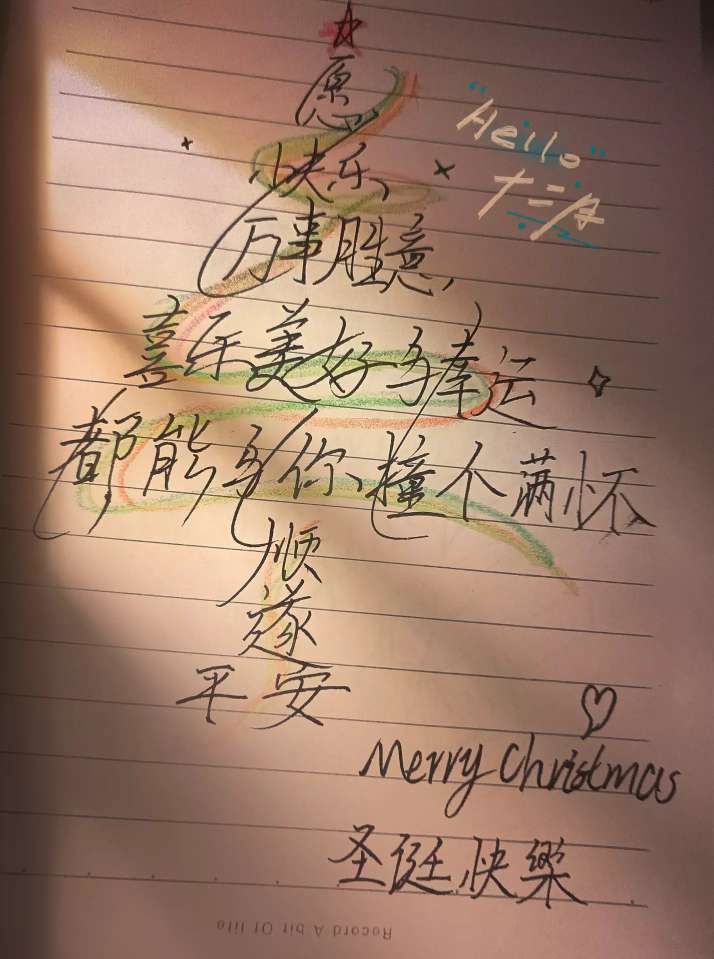 愿
快乐
万事胜意
喜乐美好与幸运
都能与你撞个满怀
顺
遂
平安
"Hello"
十二月
Merry Christmas
圣诞快樂
Record A bit Of life